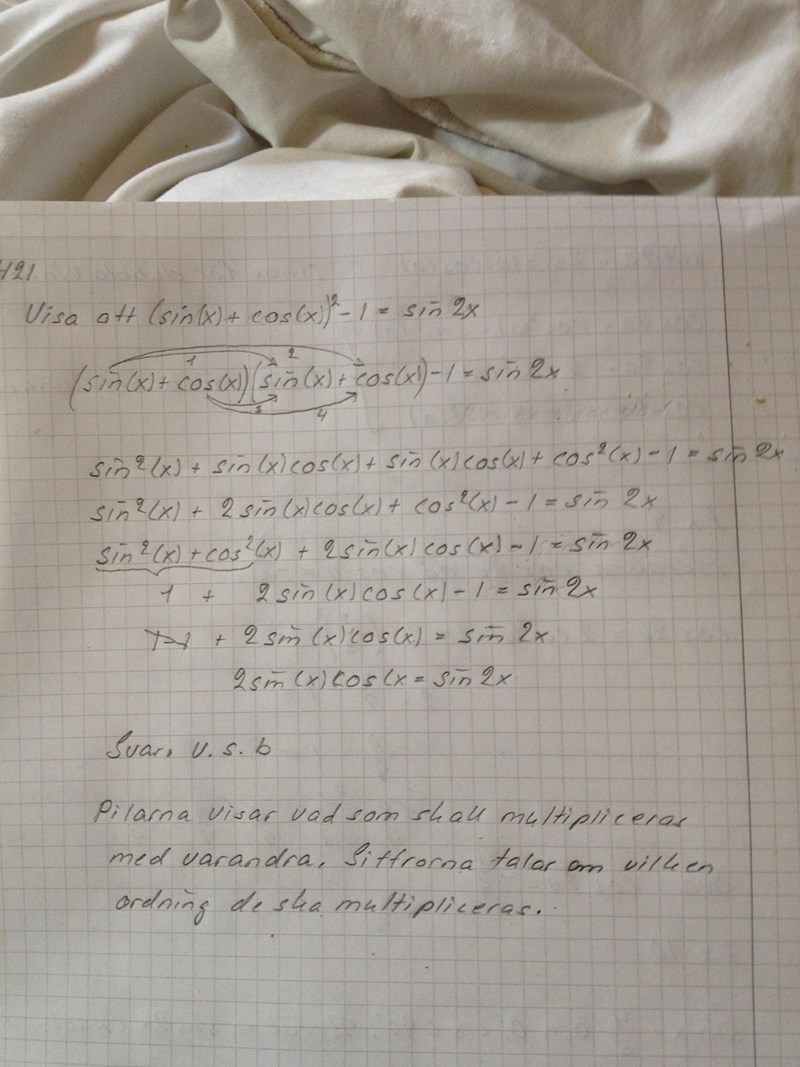 421
Visa att (sin(x)+ cos(x))²-1 = sin 2x
1 2
(sin(x)+cos(x))(sin(x)+cos(x))-1=sin 2x
3 4
sin²(x) + sin(x)cos(x)+ sin(x)cos(x)+ cos²(x)-1 = sin 2x
sin²(x) + 2sin(x)cos(x)+ cos²(x)-1=sin 2x
sin²(x)+cos²(x) + 2sin(x)cos(x)-1=sin 2x
1 + 2sin(x)cos(x)-1=sin 2x
+ 2sin(x)cos(x) = sin 2x
2sin(x)cos(x = sin 2x
Svar. V.S.b
Pilarna visar vad som skall multipliceras
med varandra. Siffrorna talar om vilken
ordning de ska multipliceras.